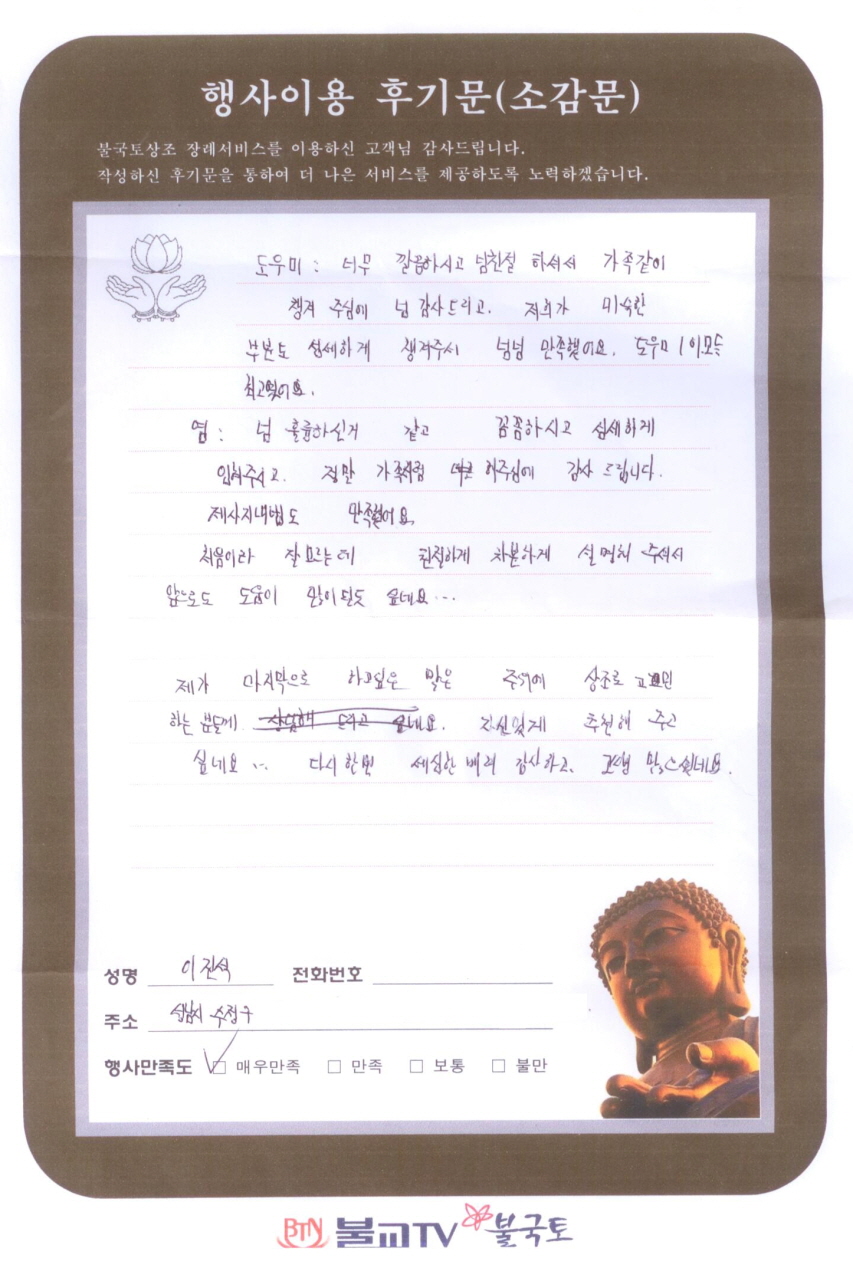 행사이용 후기문(소감문)
불국토상조 장례서비스를 이용하신 고객님 감사드립니다.
작성하신 후기문을 통하여 더 나은 서비스를 제공하도록 노력하겠습니다.
도우미 : 너무 깔끔하시고 넘친절 하셔서 가족같이
챙겨 주심에 넘 감사드리고. 저희가 미숙한
부분도 섬세하게 챙겨주시 넘넘 만족했어요. 도우미 이모등
최고였어요.
염 : 넘 훌륭하신거 같고 꼼꼼하시고 섬세하게
임해주시고. 정말 가족처럼 해주심에 감사 드립니다.
제사지내법도 만족했어요,
처음이라 잘모르는데 친절하게 차분하게 설명해 주셔서
앞으로도 도움이 많이된듯 싶네요...
제가 마지막으로 하고싶은 말은 주위에 상조로 고민
하는 분들께 자신있게 추천해 주고
싶네요... 다시한번 세심한 배려 감사하고.
성명 이진석 전화번호
주소 성남시 수정구
행사만족도 □ 매우만족 □ 만족 □ 보통 □ 불만
BTN 불교TV 불국토